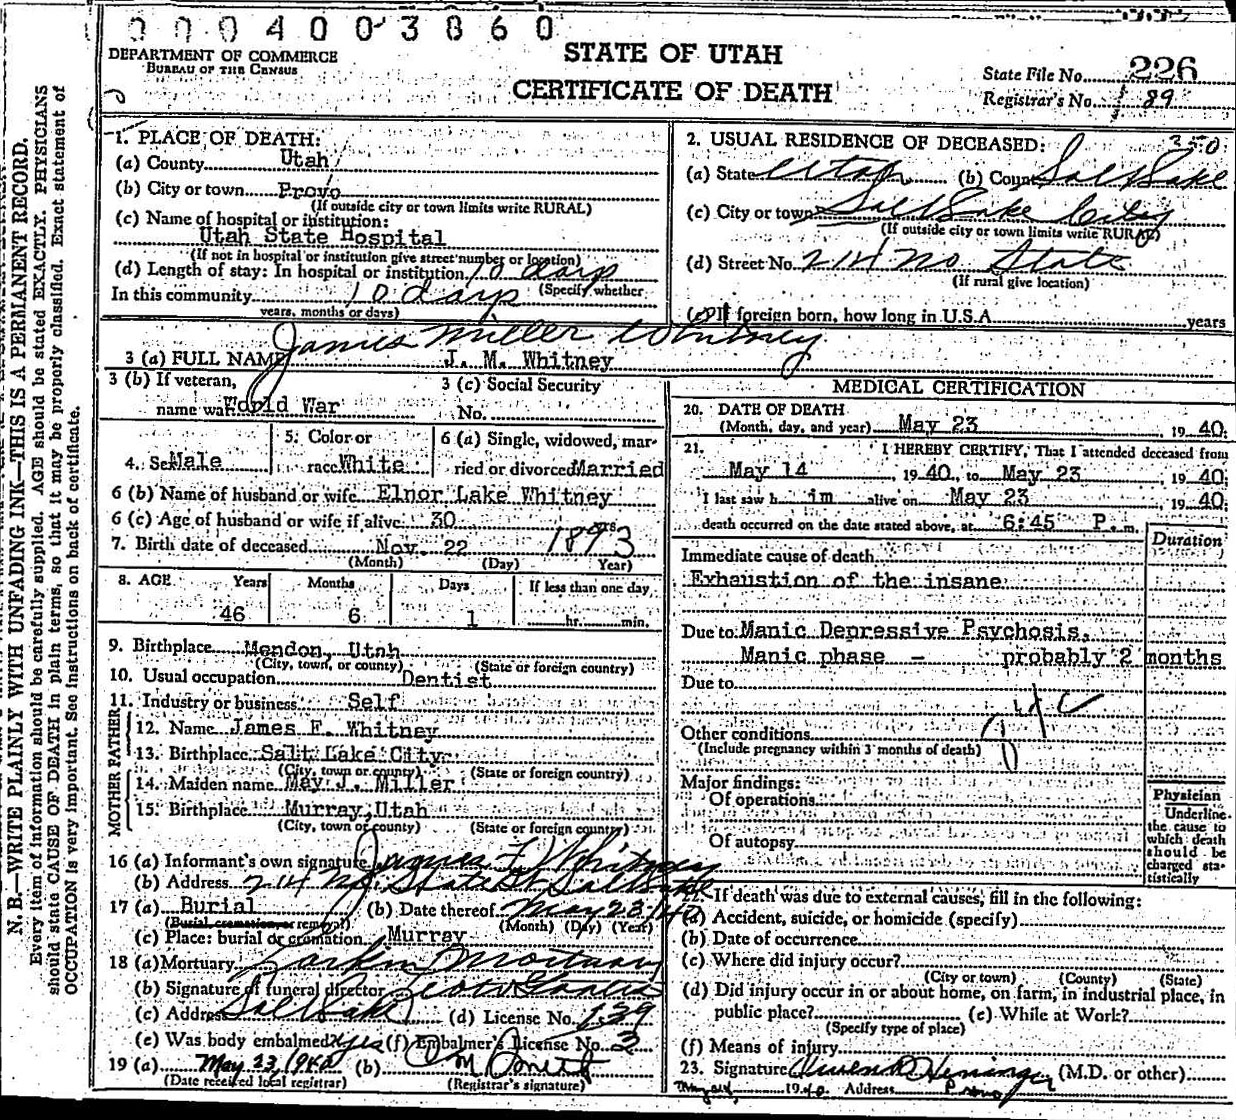 0004003860
DEPARTMENT OF COMMERCE
BUREAU OF THE CENSUS
STATE OF UTAH
CERTIFICATE OF DEATH
State File No. 226
Registrar's No. 189
N. B.—WRITE PLAINLY WITH UNFADING INK—THIS IS A PERMANENT RECORD.
Every item of information should be carefully supplied. AGE should be stated EXACTLY. PHYSICIANS
should state CAUSE OF DEATH in plain terms, so that it may be properly classified. Exact statement of
OCCUPATION is very important. See instructions on back of certificate.
1. PLACE OF DEATH:
(a) County Utah
(b) City or town Provo
(If outside city or town limits write RURAL)
(c) Name of hospital or institution:
Utah State Hospital
(If not in hospital or institution give street number or location)
(d) Length of stay: In hospital or institution 10 days
(Specify whether
In this community 10 days
years, months or days)
2. USUAL RESIDENCE OF DECEASED: 350
(a) State Utah (b) County Salt Lake
(c) City or town Salt Lake City
(If outside city or town limits write RURAL)
(d) Street No. 214 No State
(If rural give location)
(e) If foreign born, how long in U.S.A. years
James Miller Whitney
3 (a) FULL NAME J. M. Whitney
3 (b) If veteran,
name war World War
3 (c) Social Security
No.
4. Sex Male
5. Color or
race White
6 (a) Single, widowed, mar-
ried or divorced Married
6 (b) Name of husband or wife Elnor Lake Whitney
6 (c) Age of husband or wife if alive 30 yrs.
7. Birth date of deceased Nov. 22 1893
(Month) (Day) Year)
8. AGE Years Months Days If less than one day
46 6 1 hr. min.
9. Birthplace Mendon, Utah
(City, town, or county) (State or foreign country)
10. Usual occupation Dentist
11. Industry or business Self
FATHER
12. Name James F. Whitney
13. Birthplace Salt Lake City
(City, town or county) (State or foreign country)
MOTHER
14. Maiden name May J. Miller
15. Birthplace Murray, Utah
(City, town or county) (State or foreign country)
16 (a) Informant's own signature James F Whitney
(b) Address 214 No. State St Salt Lake
17 (a) Burial (b) Date thereof May 23 1940
(Burial, cremation, or removal) (Month) (Day) (Year)
(c) Place: burial or cremation Murray
18 (a) Mortuary Larkin Mortuary
(b) Signature of funeral director
(c) Address Salt Lake (d) License No. 139
(e) Was body embalmed? yes (f) Embalmer's License No. 3
19 (a) May 23, 1940 (b)
(Date received local registrar) (Registrar's signature)
MEDICAL CERTIFICATION
20. DATE OF DEATH
(Month, day, and year) May 23, 1940.
21. I HEREBY CERTIFY, That I attended deceased from
May 14, 1940, to May 23, 1940.
I last saw h im alive on May 23 1940.
death occurred on the date stated above, at 6:45 P. m.
Duration
Immediate cause of death
Exhaustion of the insane
Due to Manic Depressive Psychosis,
Manic phase - probably 2 months
Due to
Other conditions
(Include pregnancy within 3 months of death)
Major findings:
Of operations
Of autopsy
Physician
Underline
the cause to
which death
should be
charged sta-
tistically
22. If death was due to external causes, fill in the following:
(a) Accident, suicide, or homicide (specify)
(b) Date of occurrence
(c) Where did injury occur?
(City or town) (County) (State)
(d) Did injury occur in or about home, on farm, in industrial place, in
public place? (e) While at Work?
(Specify type of place)
(f) Means of injury
23. Signature Owen Heninger (M.D. or other)
1940 Address Provo